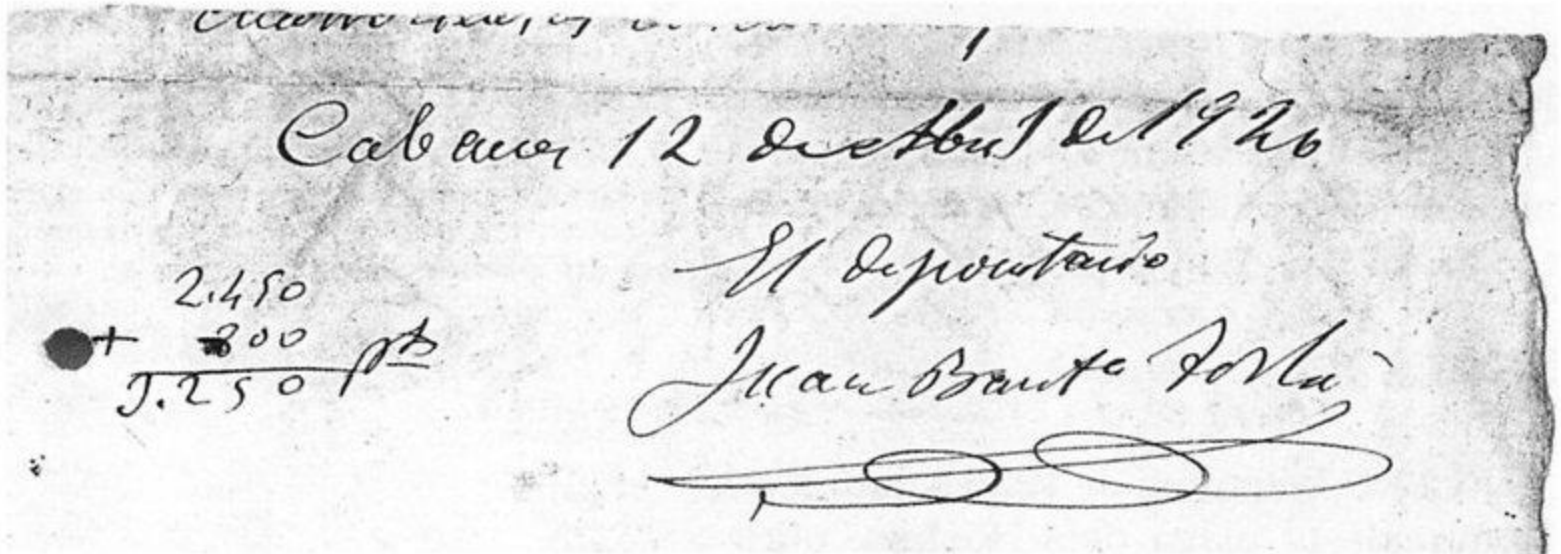 Cabanes 12 de Abril de 1920
El depositario
Juan Bauta
2.450
+ 800
3.250 pts